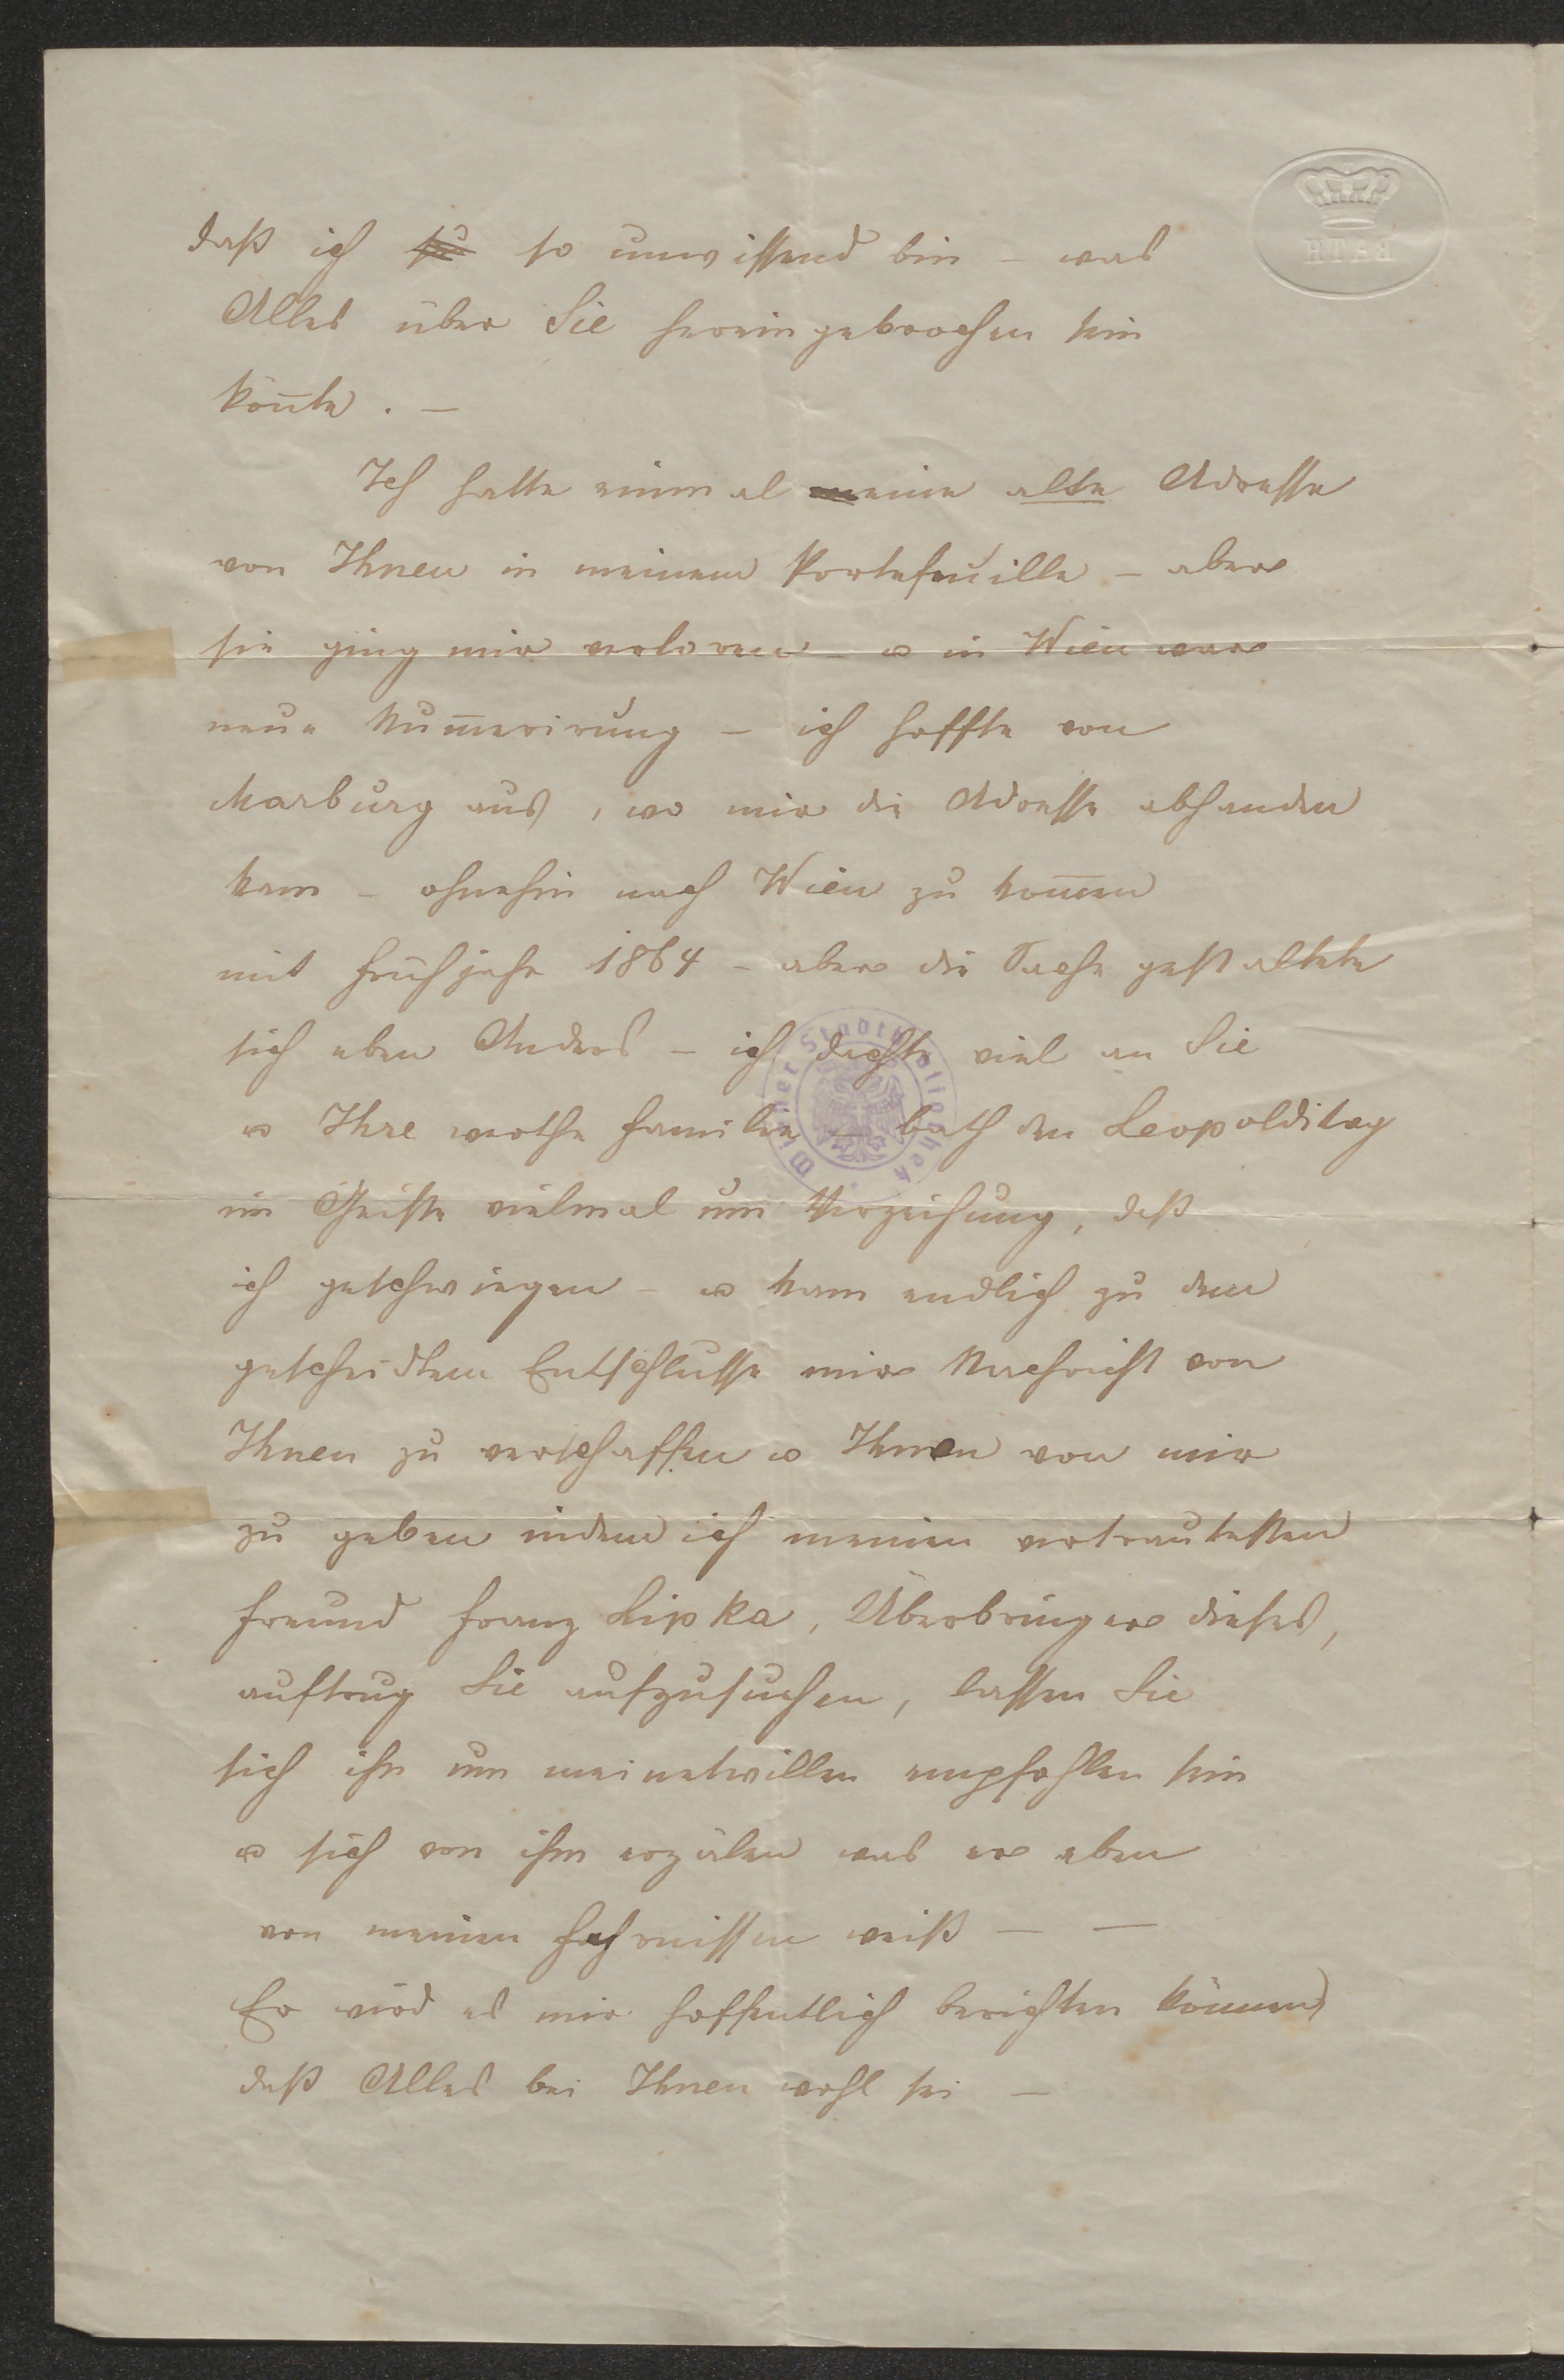 BATH
daß ich so unwissend bin – was
Alles über Sie hereingebrochen sein
kön̅te. –
Ich hatte einmal eine alte Adresse
von Ihnen in meinem Portefeuille – aber
sie ging mir verloren – u in Wien war
neue Num̅erirung – ich hoffte von
Marburg aus, wo mir die Adresse abhanden
kam – ohnehin nach Wien zu kom̅en
mit Frühjahr 1864 – aber die Sache gestaltete
sich eben Anders – ich dachte viel an Sie
u Ihre werthe Familie – bath den Leopolditag
im Geiste vielmal um Verzeihung, daß
ich geschwiegen – u kam endlich zu dem
gescheidtem Entschlusse mir Nachricht von
Ihnen zu verschaffen u Ihnen von mir
zu geben indem ich meinen vertrautesten
Freund Franz Lipka, Überbringer dieses,
auftrug Sie aufzusuchen, lassen Sie
sich ihn um meinetwillen empfohlen sein
u sich von ihm erzälen was er eben
von meinen Fahrnissen weiß – –
Er wird es mir hoffentlich berichten können
daß Alles bei Ihnen wohl sei –
Wiener Stadtbibliothek